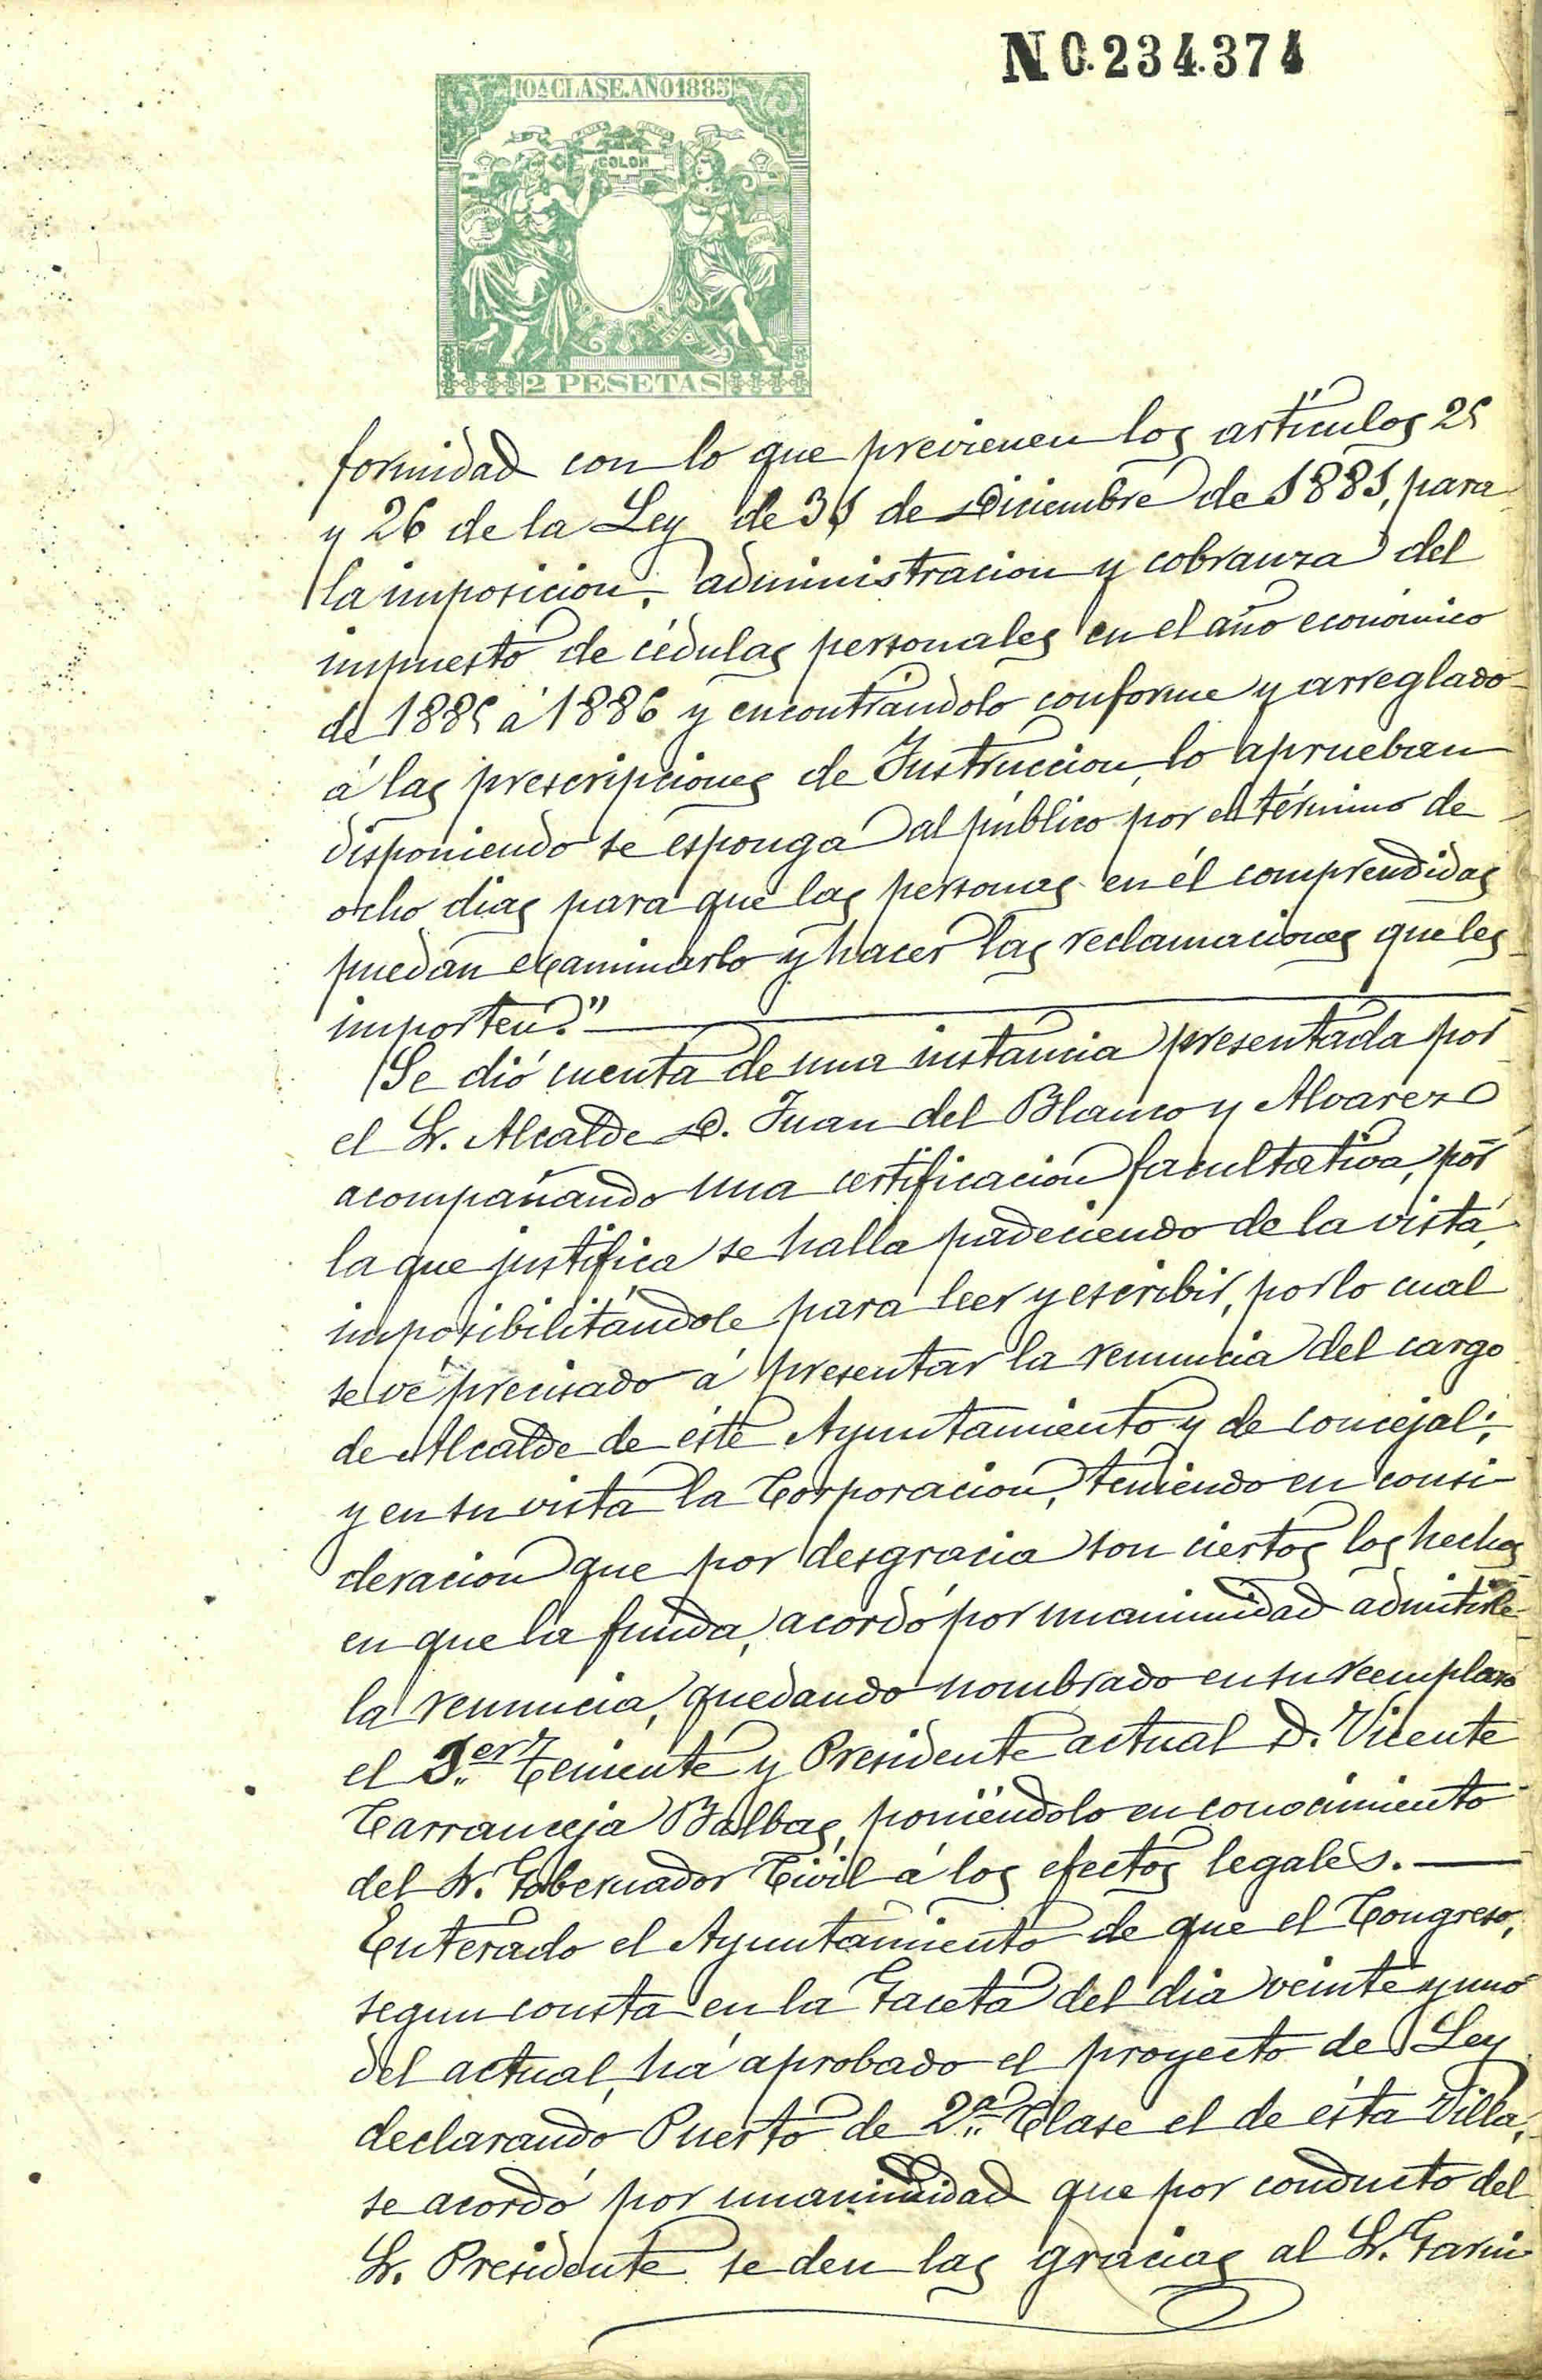 N 0.234.374
10ª CLASE. AÑO 1885
COLON
2 PESETAS
formidad con lo que previenen los artículos 25
y 26 de la Ley de 31 de Diciembre de 1881, para
la imposicion, administracion y cobranza del
impuesto de cédulas personales en el año económico
de 1885 á 1886 y encontrándolo conforme y arreglado
á las prescripciones de Instruccion, lo aprueban
disponiendo se esponga al público por el término de
ocho dias para que las personas en él comprendidas
puedan examinarlo y hacer las reclamaciones que les
importen."
Se dió cuenta de una instancia presentada por
el Sr. Alcalde D. Juan del Blanco y Alvarez
acompañando una certificacion facultativa, por
la que justifica se halla padeciendo de la vista,
imposibilitándole para leer y escribir, por lo cual
se vé precisado á presentar la renuncia del cargo
de Alcalde de éste Ayuntamiento y de concejal;
y en su vista la Corporacion, teniendo en consi-
deracion que por desgracia son ciertos los hechos
en que la funda, acordó por unanimidad admitirle
la renuncia, quedando nombrado en su reemplazo
el 1.er Teniente y Presidente actual D. Vicente
Carranceja Balbas, poniéndolo en conocimiento
del Sr. Gobernador Civil á los efectos legales.
Enterado el Ayuntamiento de que el Congreso,
segun consta en la Gaceta del dia veinte y uno
del actual, há aprobado el proyecto de Ley
declarando Puerto de 2.ª Clase el de ésta Villa,
se acordó por unanimidad que por conducto del
Sr. Presidente se den las gracias al Sr.